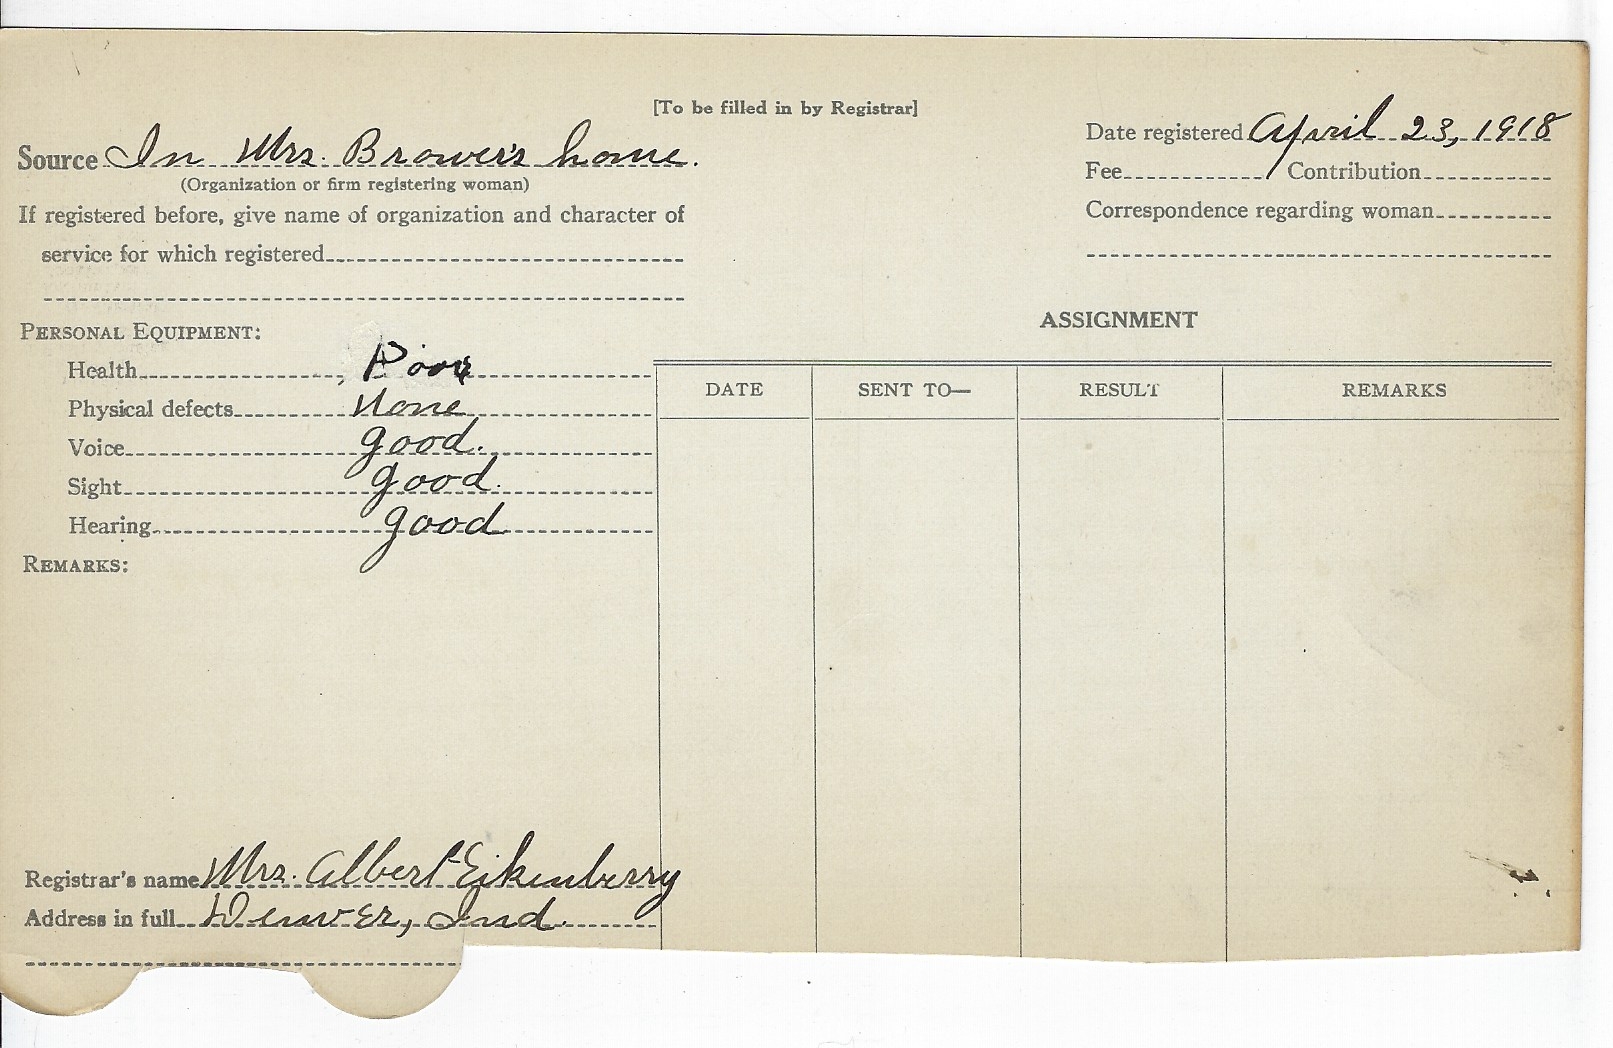 [To be filled in by Registrar]
Source In Mrs. Brower's home.
(Organization or firm registering woman)
If registered before, give name of organization and character of
service for which registered
Date registered April 23, 1918
Fee / Contribution
Correspondence regarding woman
PERSONAL EQUIPMENT:
Health Poor
Physical defects None
Voice good.
Sight good.
Hearing good
REMARKS:
ASSIGNMENT
DATE SENT TO— RESULT REMARKS
Registrar's name Mrs. Albert Eikenberry
Address in full Denver, Ind.